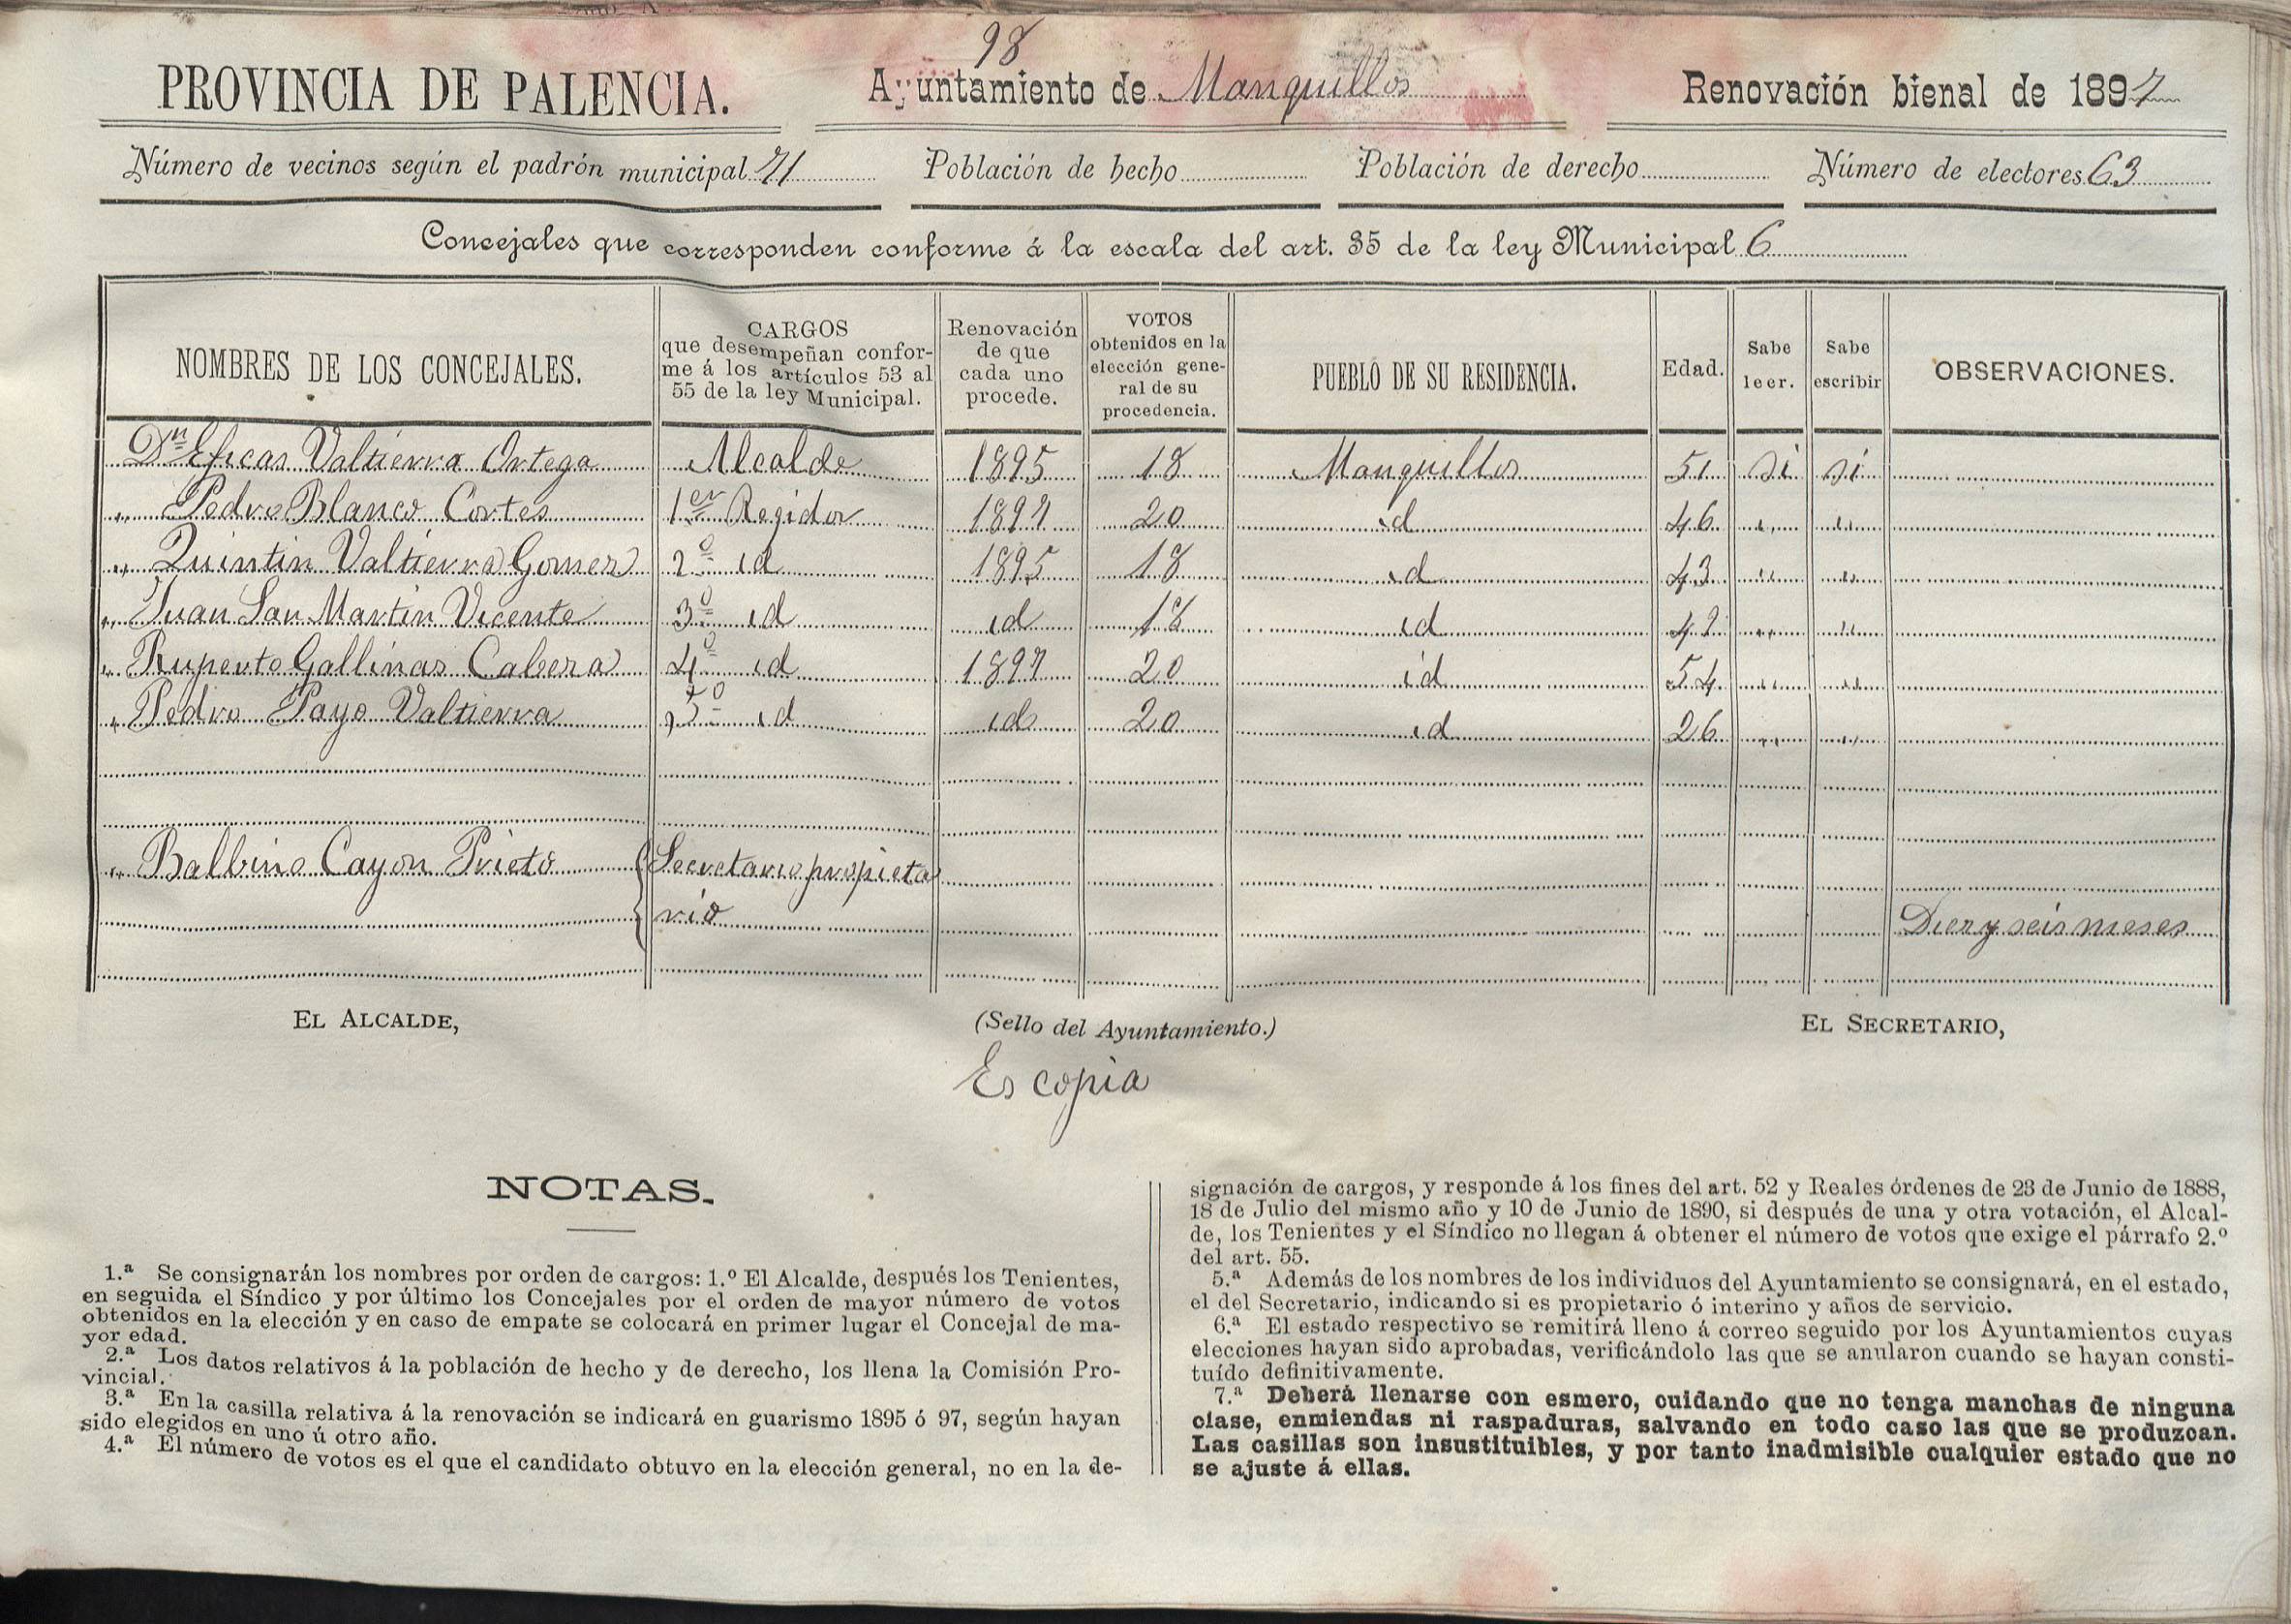 98
PROVINCIA DE PALENCIA. Ayuntamiento de Manquillos Renovación bienal de 1897
Número de vecinos según el padrón municipal 71 Población de hecho Población de derecho Número de electores 63
Concejales que corresponden conforme á la escala del art. 35 de la ley Municipal 6
NOMBRES DE LOS CONCEJALES.
CARGOS
que desempeñan confor-
me á los artículos 53 al
55 de la ley Municipal.
Renovación
de que
cada uno
procede.
VOTOS
obtenidos en la
elección gene-
ral de su
procedencia.
PUEBLO DE SU RESIDENCIA.
Edad.
Sabe
leer.
Sabe
escribir
OBSERVACIONES.
Dn Valtierra Ortega Alcalde 1895 18 Manquillos 51 si si
„ Pedro Blanco Cortes 1er Regidor 1897 20 id 46 „ „
„ Quintin Valtierra Gomez 2º id 1895 18 id 43 „ „
„ Juan San Martin Vicente 3º id id 18 id „ „
„ Ruperto Gallinas Cabeza 4º id 1897 20 id 54 „ „
„ Pedro Payo Valtierra 5º id id 20 id 26 „ „
„ Balbino Cayon Prieto Secretario propieta
rio Diez y seis meses
EL ALCALDE, (Sello del Ayuntamiento.) EL SECRETARIO,
Es copia
NOTAS.
1.ª Se consignarán los nombres por orden de cargos: 1.º El Alcalde, después los Tenientes,
en seguida el Síndico y por último los Concejales por el orden de mayor número de votos
obtenidos en la elección y en caso de empate se colocará en primer lugar el Concejal de ma-
yor edad.
2.ª Los datos relativos á la población de hecho y de derecho, los llena la Comisión Pro-
vincial.
3.ª En la casilla relativa á la renovación se indicará en guarismo 1895 ó 97, según hayan
sido elegidos en uno ú otro año.
4.ª El número de votos es el que el candidato obtuvo en la elección general, no en la de-
signación de cargos, y responde á los fines del art. 52 y Reales órdenes de 23 de Junio de 1888,
18 de Julio del mismo año y 10 de Junio de 1890, si después de una y otra votación, el Alcal-
de, los Tenientes y el Síndico no llegan á obtener el número de votos que exige el párrafo 2.º
del art. 55.
5.ª Además de los nombres de los individuos del Ayuntamiento se consignará, en el estado,
el del Secretario, indicando si es propietario ó interino y años de servicio.
6.ª El estado respectivo se remitirá lleno á correo seguido por los Ayuntamientos cuyas
elecciones hayan sido aprobadas, verificándolo las que se anularon cuando se hayan consti-
tuído definitivamente.
7.ª Deberá llenarse con esmero, cuidando que no tenga manchas de ninguna
clase, enmiendas ni raspaduras, salvando en todo caso las que se produzcan.
Las casillas son insustituibles, y por tanto inadmisible cualquier estado que no
se ajuste á ellas.